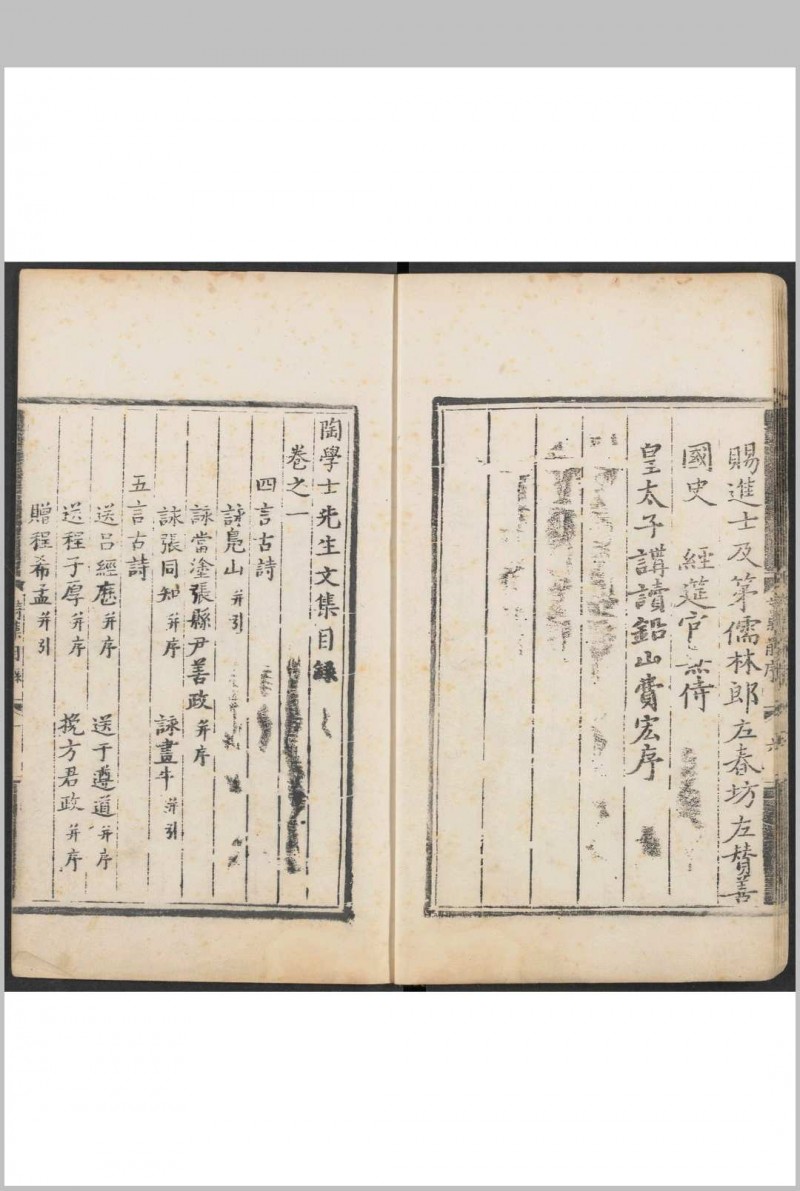 賜進士及第儒林郎左春坊左贊善
國史　經筵官兼侍
皇太子講讀鉛山費宏序
陶學士先生文集目録
卷之一
四言古詩
詠鳧山并引
詠當塗張縣尹善政并序
詠張同知并序　詠畫牛并引
五言古詩
送呂經歷并序　送于遵道并序
送程子厚并序　挽方君政并序
贈程希孟并引